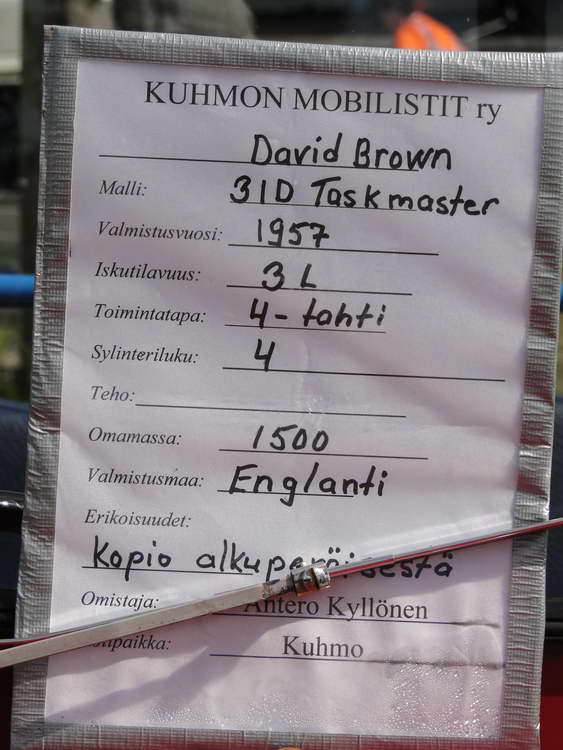 KUHMON MOBILISTIT ry
David Brown
Malli: 31D Taskmaster
Valmistusvuosi: 1957
Iskutilavuus: 3 L
Toimintatapa: 4-tahti
Sylinteriluku: 4
Teho:
Omamassa: 1500
Valmistusmaa: Englanti
Erikoisuudet:
Kopio alkuperäisestä
Omistaja: Antero Kyllönen
Kuhmo